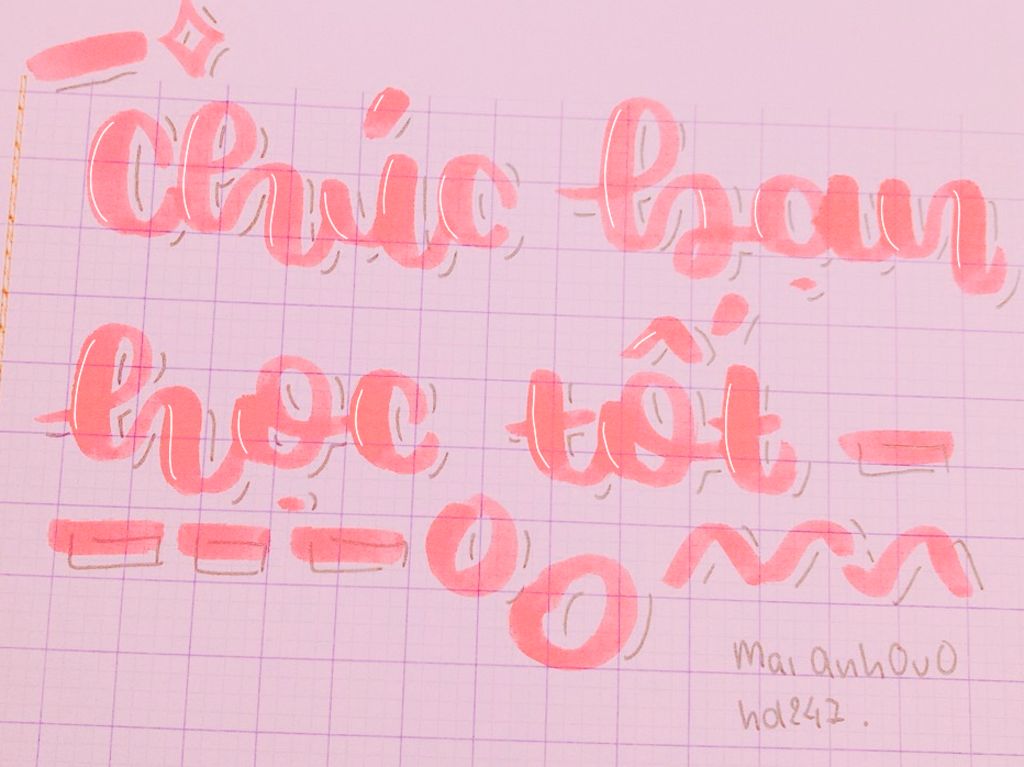 Chúc bạn
học tốt
Mai Anh0v0
hd247.